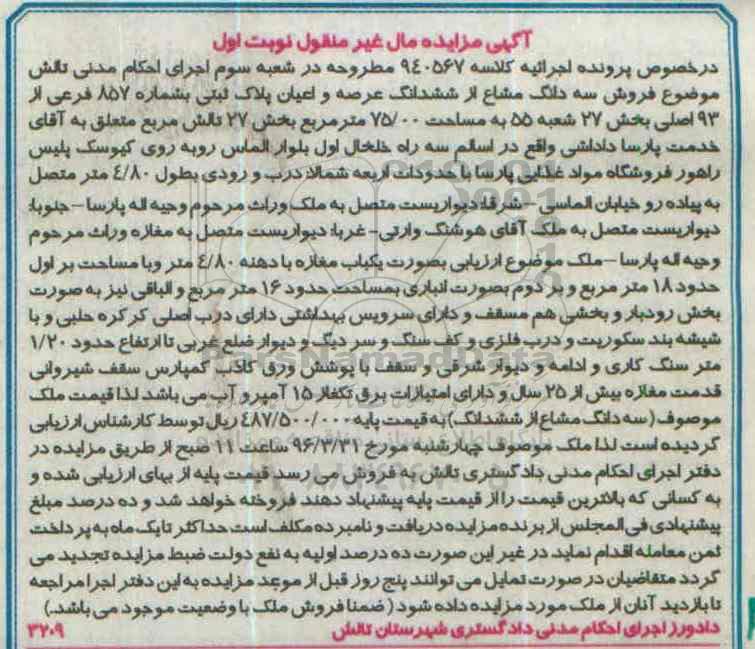 آگهی مزایده مال غیر منقول نوبت اول
درخصوص پرونده اجرائیه کلاسه ۹۴۰۵۶۷ مطروحه در شعبه سوم اجرای احکام مدنی تالش
موضوع فروش سه دانگ مشاع از ششدانگ عرصه و اعیان پلاک ثبتی بشماره ۸۵۷ فرعی از
۹۳ اصلی بخش ۲۷ شعبه ۵۵ به مساحت ۷۵/۰۰ مترمربع بخش ۲۷ تالش مربع متعلق به آقای
خدمت پارسا داداشی واقع در اسالم سه راه خلخال اول بلوار الماس روبه روی کیوسک پلیس
راهور فروشگاه مواد غذایی پارسا با حدودات اربعه شمالا: درب و رودی بطول ۴/۸۰ متر متصل
به پیاده رو خیابان الماسی - شرقا: دیواریست متصل به ملک وراث مرحوم وجیه اله پارسا - جنوبا:
دیواریست متصل به ملک آقای هوشنگ وارثی- غربا: دیواریست متصل به مغازه وراث مرحوم
وجیه اله پارسا - ملک موضوع ارزیابی بصورت یکباب مغازه با دهنه ۴/۸۰ متر وبا مساحت بر اول
حدود ۱۸ متر مربع و بر دوم بصورت انباری بمساحت حدود ۱۶ متر مربع و الباقی نیز به صورت
بخش رودبار و بخشی هم مسقف و دارای سرویس بهداشتی دارای درب اصلی کرکره حلبی و با
شیشه بند سکوریت و درب فلزی و کف سنگ و سر دیگ و دیوار ضلع غربی تا ارتفاع حدود ۱/۲۰
متر سنگ کاری و ادامه و دیوار شرقی و سقف با پوشش ورق کاذب کمپارس سقف شیروانی
قدمت مغازه بیش از ۲۵ سال و دارای امتیازات برق تکفاز ۱۵ آمپر و آب می باشد لذا قیمت ملک
موصوف (سه دانگ مشاع از ششدانگ) به قیمت پایه ۴۸۷/۵۰۰/۰۰۰ ریال توسط کارشناس ارزیابی
گردیده است لذا ملک موصوف چهارشنبه مورخ ۹۶/۳/۳۱ ساعت ۱۱ صبح از طریق مزایده در
دفتر اجرای احکام مدنی دادگستری تالش به فروش می رسد قیمت پایه از بهای ارزیابی شده و
به کسانی که بالاترین قیمت را از قیمت پایه پیشنهاد دهند فروخته خواهد شد و ده درصد مبلغ
پیشنهادی فی المجلس از برنده مزایده دریافت و نامبرده مکلف است حداکثر تا یک ماه به پرداخت
ثمن معامله اقدام نماید در غیر این صورت ده درصد اولیه به نفع دولت ضبط مزایده تجدید می
گردد متقاضیان در صورت تمایل می توانند پنج روز قبل از موعد مزایده به این دفتر اجرا مراجعه
تا بازدید آنان از ملک مورد مزایده داده شود (ضمنا فروش ملک با وضعیت موجود می باشد.)
دادورز اجرای احکام مدنی دادگستری شهرستان تالش
۳۲۰۹
ParsNamadData